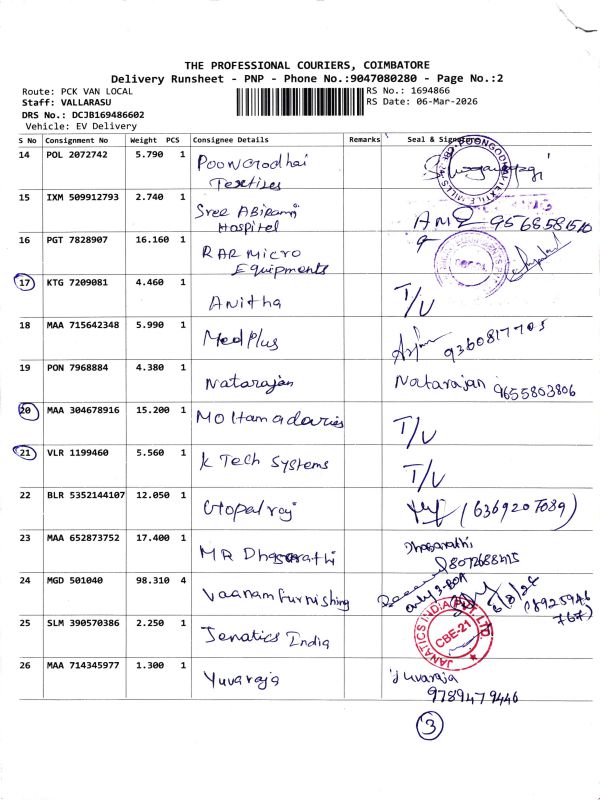 THE PROFESSIONAL COURIERS, COIMBATORE
Delivery Runsheet - PNP - Phone No.:9047080280 - Page No.:2
Route: PCK VAN LOCAL
RS No.: 1694866
Staff: VALLARASU
RS Date: 06-Mar-2026
DRS No.: DCJB169486602
Vehicle: EV Delivery
S No Consignment No Weight PCS Consignee Details Remarks Seal & Signature
14 POL 2072742 5.790 1 Poongodhai
Textiles
15 IXM 509912793 2.740 1 Sree ABirami
Hospital
16 PGT 7828907 16.160 1 RAR Micro
Equipments
17 KTG 7209081 4.460 1 Anitha T/U
18 MAA 715642348 5.990 1 Medplus 9360817705
19 PON 7968884 4.380 1 Natarajan Natarajan 9655803806
20 MAA 304678916 15.200 1 T/U
21 VLR 1199460 5.560 1 K Tech Systems T/U
22 BLR 5352144107 12.050 1 Gopalraj (6369207089)
23 MAA 652873752 17.400 1 MR Dhasarathi Dhasarathi
24 MGD 501040 98.310 4 Vaanam furnishing
25 SLM 390570386 2.250 1 Jenatics India JANATICS INDIA PVT. LTD. CBE-21
26 MAA 714345977 1.300 1 Yuvaraja Yuvaraja
9789479446
3